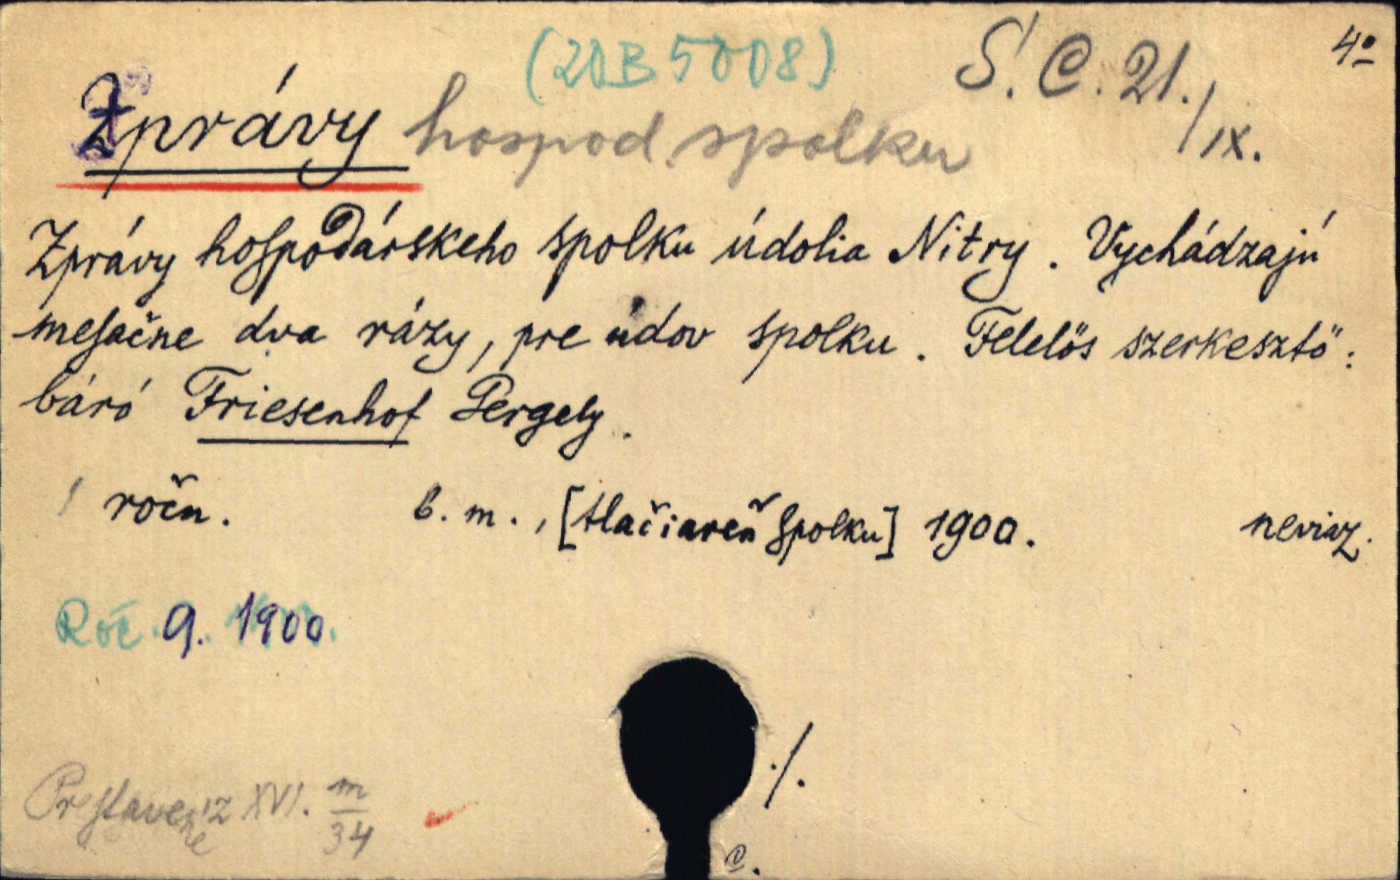 (20B 5008)
S. C. 21./IX.
4º
Zprávy hospod. spolku
Zprávy hospodárskeho spolku údolia Nitry. Vychádzajú
mesačne dva rázy, pre údov spolku. Felelős szerkesztő:
báró Friesenhof Gergely.
1 ročn. b. m., [tlačiareň spolku] 1900. neviaz.
Roč. 9. 1900.
Prestavené iz XVI. m/34
./.